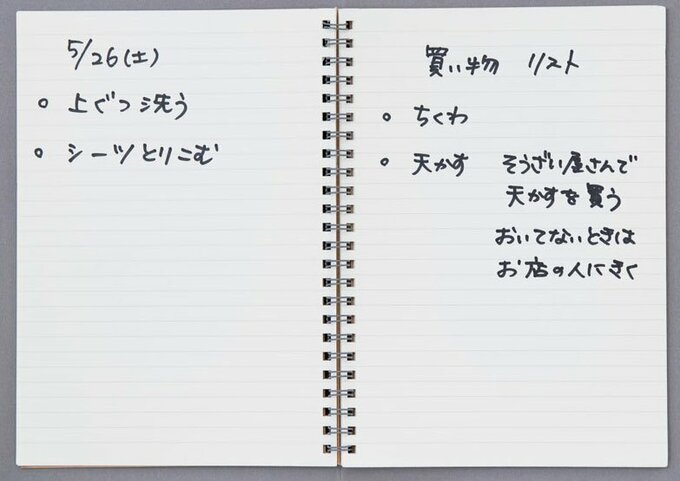 5/26(土)
○ 上ぐつ洗う
○ シーツとりこむ
買い物 リスト
○ ちくわ
○ 天かす そうざい屋さんで
天かすを買う
おいてないときは
お店の人にきく